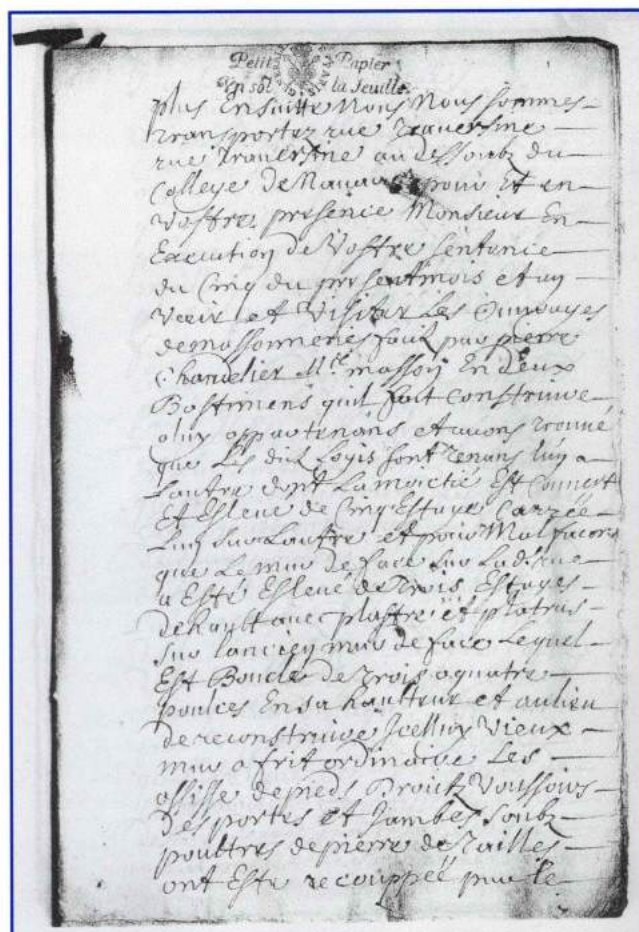 Petit Papier
Un sol la feuille
plus Ensuitte Nous Nous sommes
transportez rue traversine
rue traversine au dessoubz du
College de Navarre pour Et en
vostre presence Monsieur En
Execution de vostre sentance
du Cinq du present mois et an
veoir et visiter Les Ouvrages
de massonneries faits par pierre
Chandelier Mtre masson En deux
Bastimens quil fait construire
a luy appartenans et avons trouvé
que Les dits Logis sont tenans lun a
Lautre dont La moictié Est Couvert
Et Eslevé de Cinq Estages Carrée
Lun sur Lautre et pour Malfacons
que Le mur de face sur Lad. rue
a Esté Eslevé de trois Estages
de hault avec plastre et platras
sur lancien mur de face Lequel
Est Bouclé de trois a quatre
poulces En sa haulteur et au lieu
de reconstruire Icelluy vieux
mur a frit ordinaire Les
assisse de pieds Droitz voussoirs
des portes et Jambes soubz
poultres de pierre de tailles
ont Esté recouppéé par le